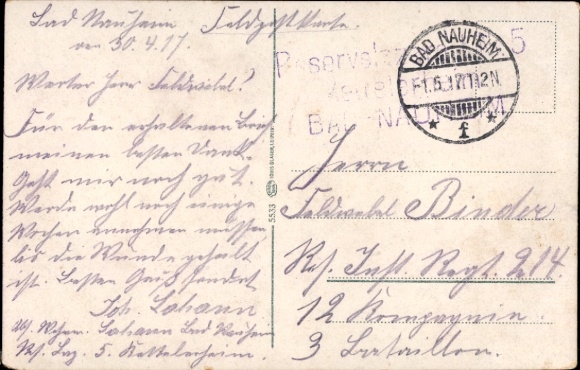 Bad Nauheim Feldpostkarte.
den 30.4.17.
Werter Herr Feldwebel!
Für den erhaltenen Brief
meinen besten Dank.
Geht mir noch gut.
Werde wohl noch einige
Wochen annehmen müssen,
bis die Wunde geheilt
ist. Besten Gruß sendet
Joh. Lohann
Abs. Wehrm. Lohann Bad Nauheim
Rs. Laz. 5. Kettelerheim.
5533
Reservelaz
BAD-NAUHEIM
5
BAD NAUHEIM
-1.5.17.11-12N.
* f *
Herrn
Feldwebel Binder
Rs. Inft. Regt. 214.
12 Kompagnie.
3 Bataillon.